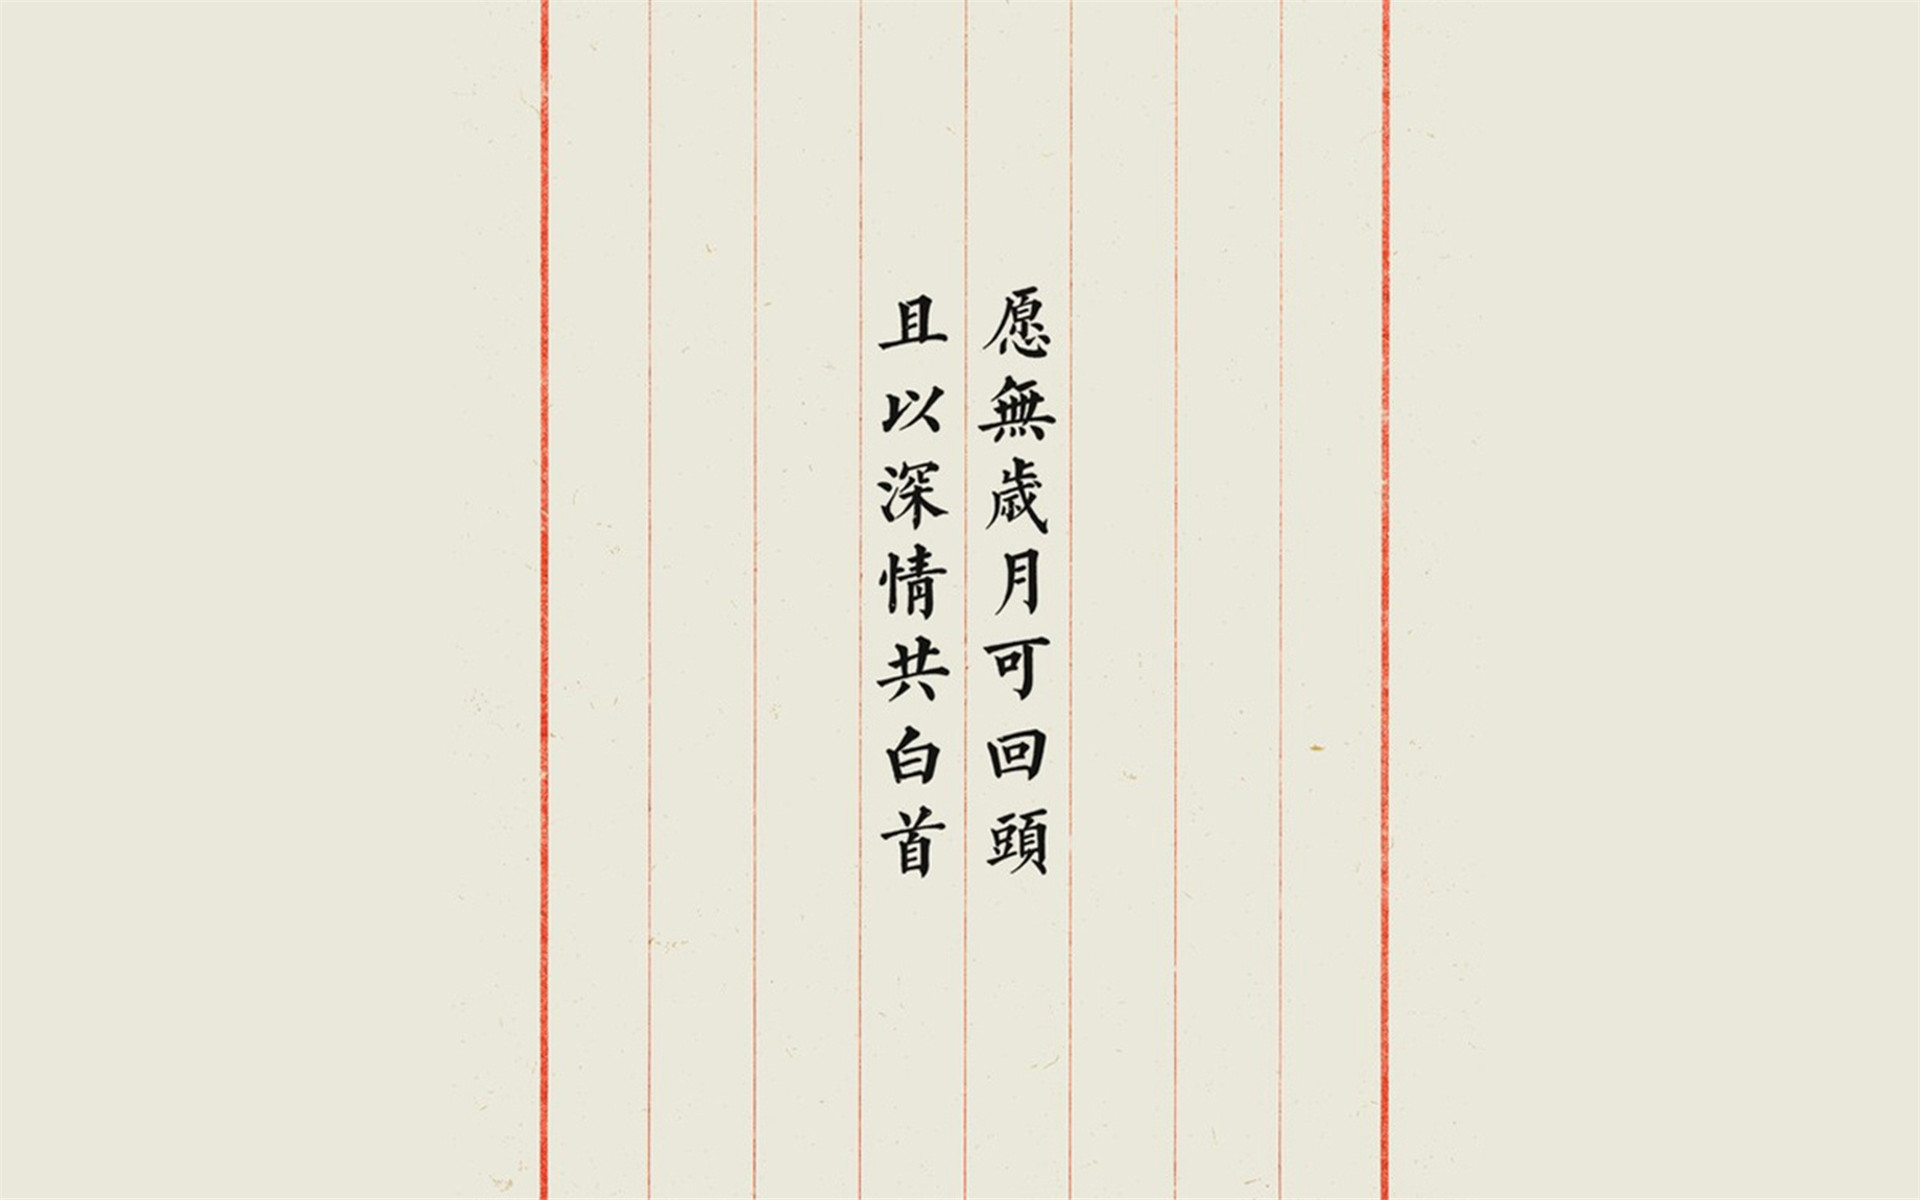 愿無歳月可回頭
且以深情共白首